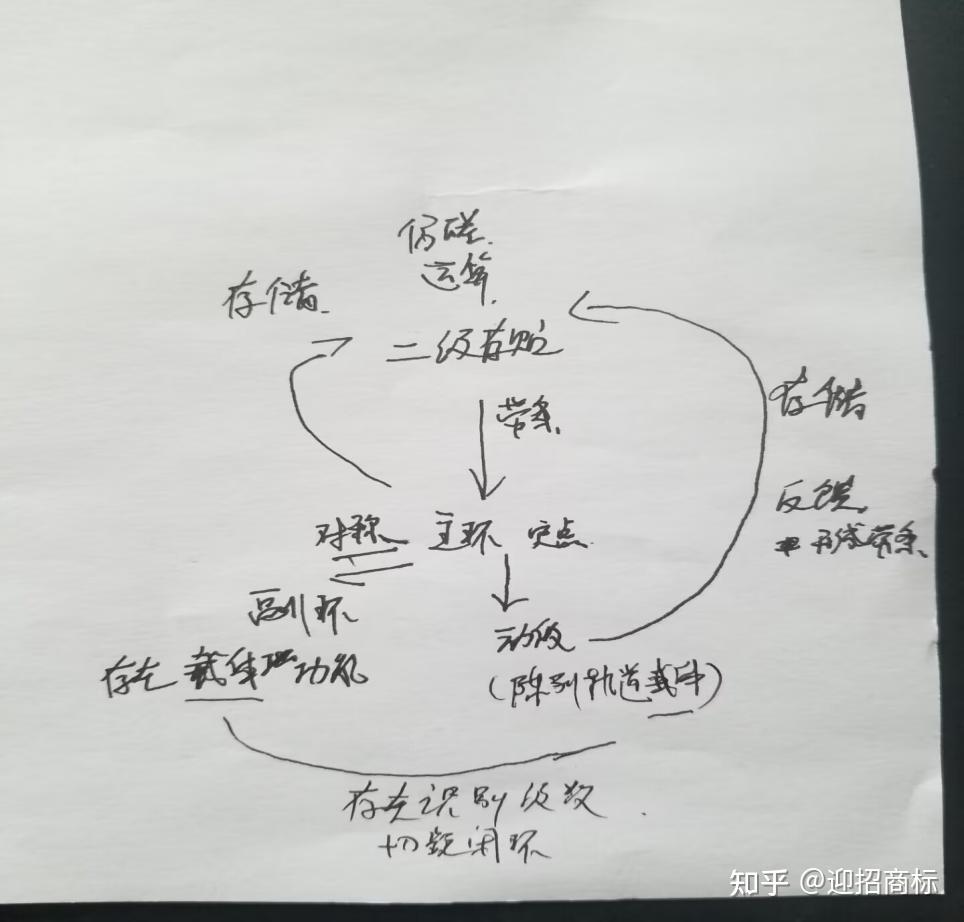 运算
存储
二级存贮
带条
存储
反馈
形成带条
对称 主环 定点
副环
动级
存在 载体 功能
(陈列轨道载体)
存在识别级数
切换闭环
知乎 @迎招商标